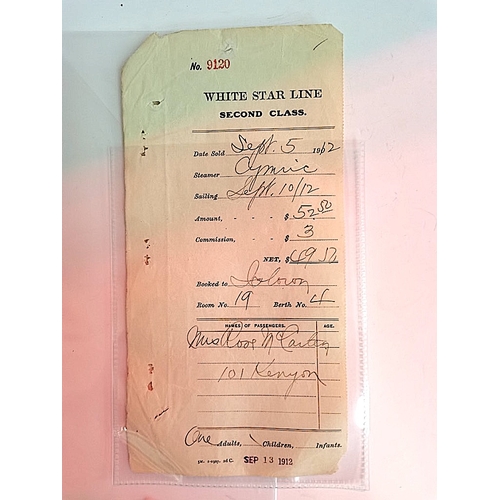 No. 9120
WHITE STAR LINE
SECOND CLASS.
Date Sold Sept. 5 1912
Steamer Cymric
Sailing Sept. 10/12
Amount, - - $ 52.50
Commission, - $ 3
NET, $ 49.50
Booked to
Room No. 19 Berth No. 4
NAMES OF PASSENGERS. AGE.
Mrs Rose
101 Kenyon
One Adults, Children, Infants.
SEP 13 1912